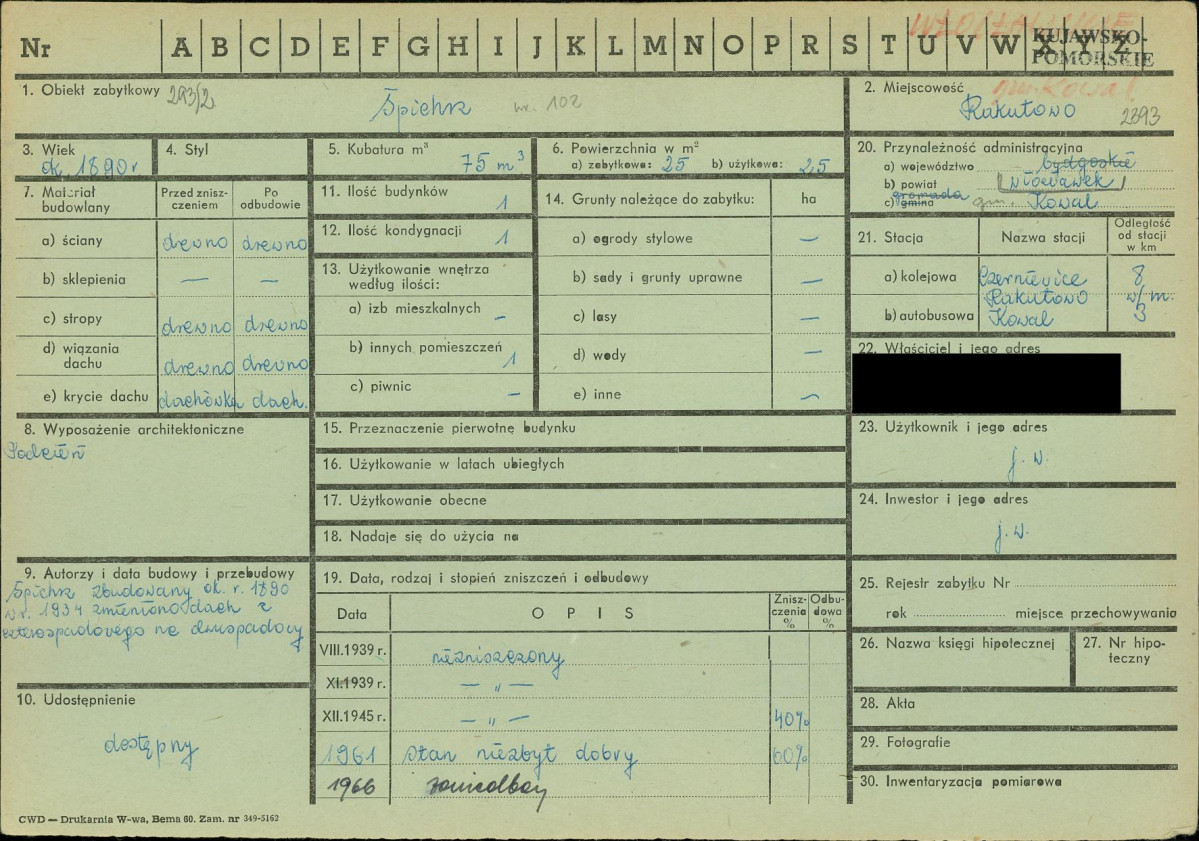 WŁOCŁAWSKIE
KUJAWSKO-
POMORSKIE
Nr A B C D E F G H I J K L M N O P R S T U V W X Y Z
1. Obiekt zabytkowy 293/2
Śpichrz nr. 102
2. Miejscowość gm. Kowal
Rakutowo 2393
3. Wiek
ok. 1890 r
4. Styl
5. Kubatura m³
75 m³
6. Powierzchnia w m²
a) zabytkowa: 25 b) użytkowa: 25
20. Przynależność administracyjna
a) województwo bydgoskie
b) powiat włocławek
gromada
c) gmina gm. Kowal
7. Materiał budowlany
Przed zniszczeniem
Po odbudowie
a) ściany drewno drewno
b) sklepienia — —
c) stropy drewno drewno
d) wiązania dachu drewno drewno
e) krycie dachu dachówka dach.
11. Ilość budynków 1
12. Ilość kondygnacji 1
13. Użytkowanie wnętrza
według ilości:
a) izb mieszkalnych –
b) innych pomieszczeń 1
c) piwnic –
14. Grunty należące do zabytku: ha
a) ogrody stylowe —
b) sady i grunty uprawne —
c) lasy —
d) wody —
e) inne —
21. Stacja Nazwa stacji Odległość od stacji w km
a) kolejowa Czerniewice 8
Rakutowo w/m.
b) autobusowa Kowal 3
22. Właściciel i jego adres
8. Wyposażenie architektoniczne
15. Przeznaczenie pierwotne budynku
16. Użytkowanie w latach ubiegłych
17. Użytkowanie obecne
18. Nadaje się do użycia na
23. Użytkownik i jego adres
j. w.
24. Inwestor i jego adres
j. w.
9. Autorzy i data budowy i przebudowy
Śpichrz zbudowany ok. r. 1890
w r. 1934 zmieniono dach z
czterospadowego na dwuspadowy
19. Data, rodzaj i stopień zniszczeń i odbudowy
Data O P I S Zniszczenia % Odbudowa %
VIII.1939 r. niezniszczony
XI.1939 r. — „ —
XII.1945 r. — „ — 40%
1961 stan niezbyt dobry 60%
1966 zaniedbany
25. Rejestr zabytku Nr
rok miejsce przechowywania
26. Nazwa księgi hipotecznej
27. Nr hipoteczny
10. Udostępnienie
dostępny
28. Akta
29. Fotografie
30. Inwentaryzacja pomiarowa
CWD — Drukarnia W-wa, Bema 60. Zam. nr 349-5162